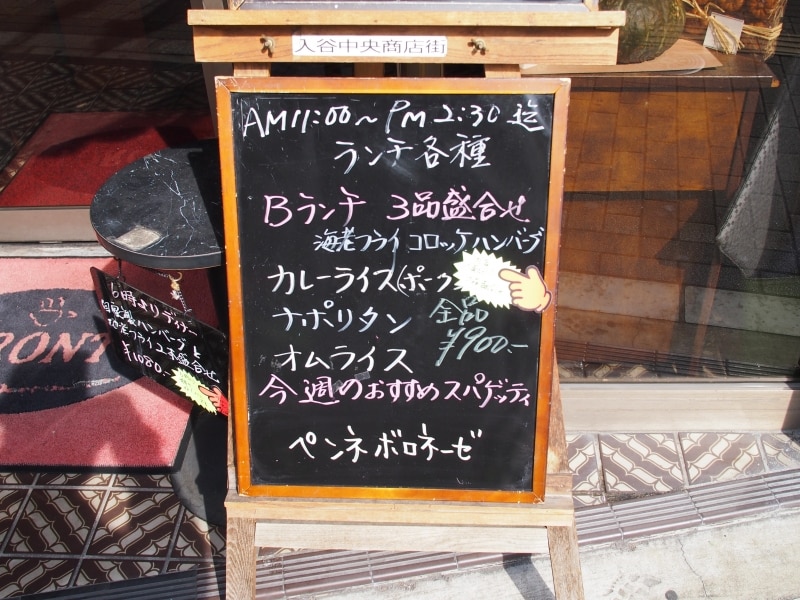 入谷中央商店街
AM11:00～PM2:30迄
ランチ各種
Bランチ 3品盛合せ
海老フライ コロッケ ハンバーグ
カレーライス(ポーク
ナポリタン 全品
オムライス ¥900.-
今週のおすすめスパゲッティ
ペンネボロネーゼ
6時よりディナー
自家製ハンバーグと
海老フライ2本盛合せ
¥1080.-
RONT